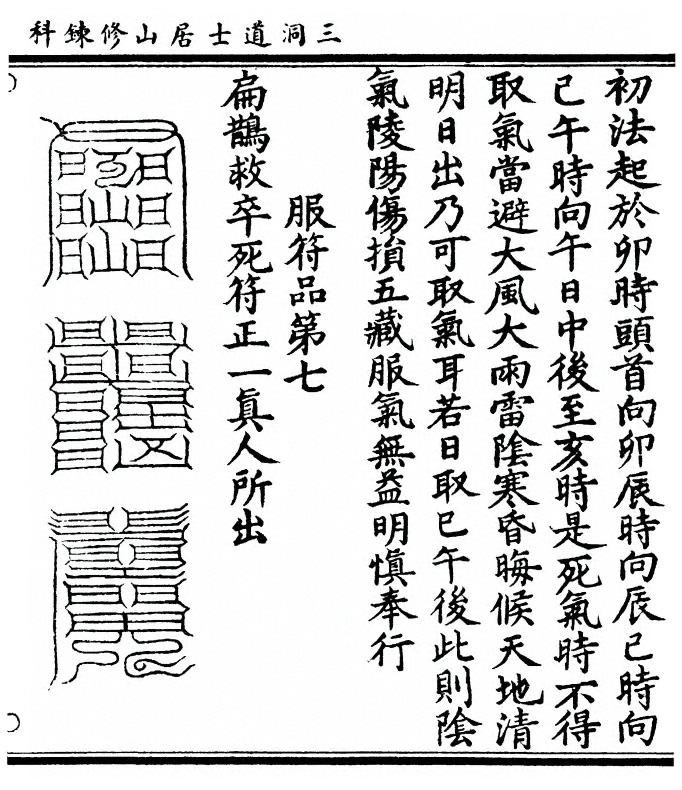 三洞道士居山修鍊科
初法起於卯時頭首向卯辰時向辰巳時向
巳午時向午日中後至亥時是死氣時不得
取氣當避大風大雨雷陰寒昏晦候天地清
明日出乃可取氣耳若日取巳午後此則陰
氣陵陽傷損五藏服氣無益明慎奉行
服符品第七
扁鵲救卒死符正一真人所出